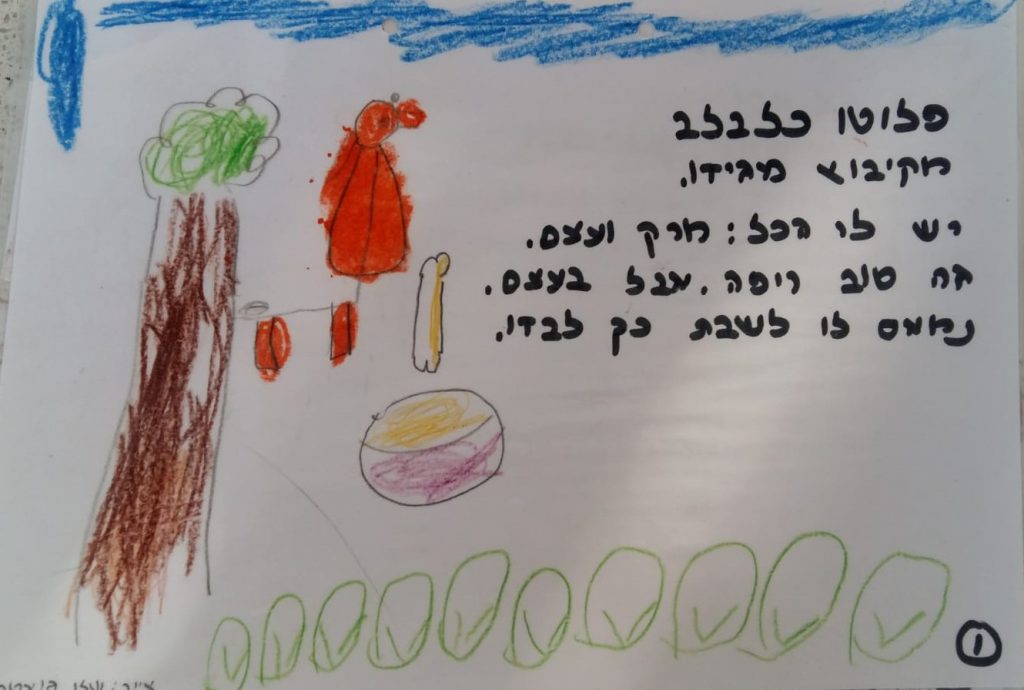 פלוטו כלבלב
מקיבוץ מגידו.
יש לו הכל: מרק ועצם.
זה טוב ויפה. אבל בעצם.
נמאס לו לשבת כך לבדו.
1